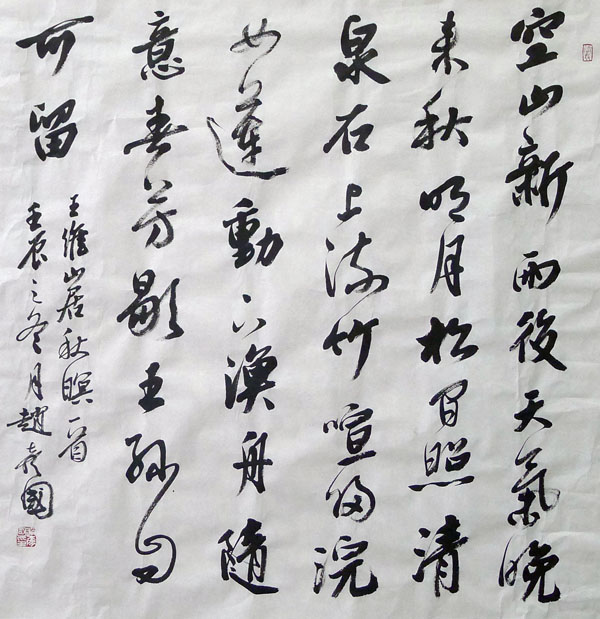 空山新雨後天氣晚
来秋明月松间照清
泉石上流竹喧归浣
女蓮動下漁舟隨
意春芳歇王孫自
可留
王維山居秋暝一首
壬辰之冬月趙國